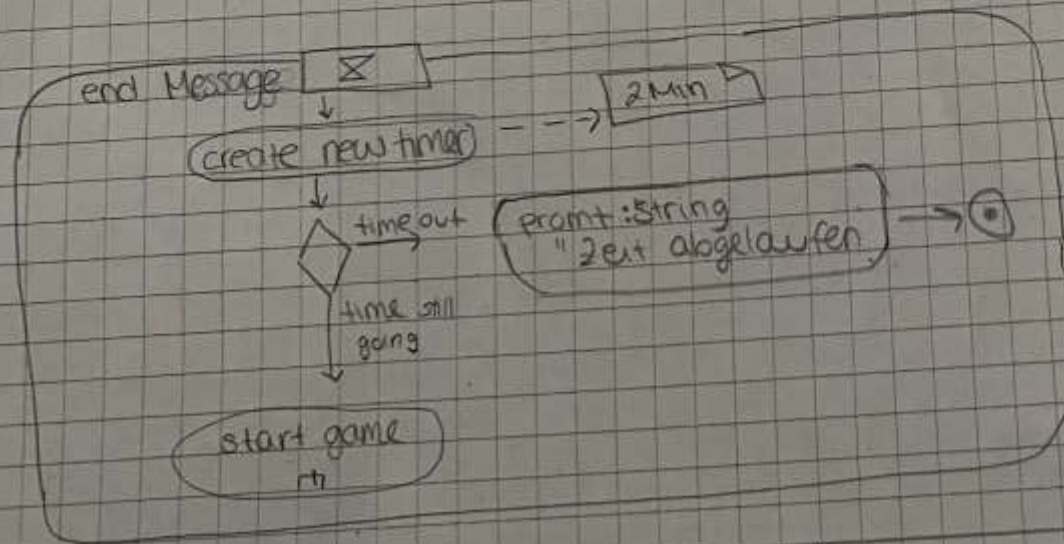 end Message
2 Min
create new timer
time out
promt : String
"Zeit abgelaufen
time still
going
start game